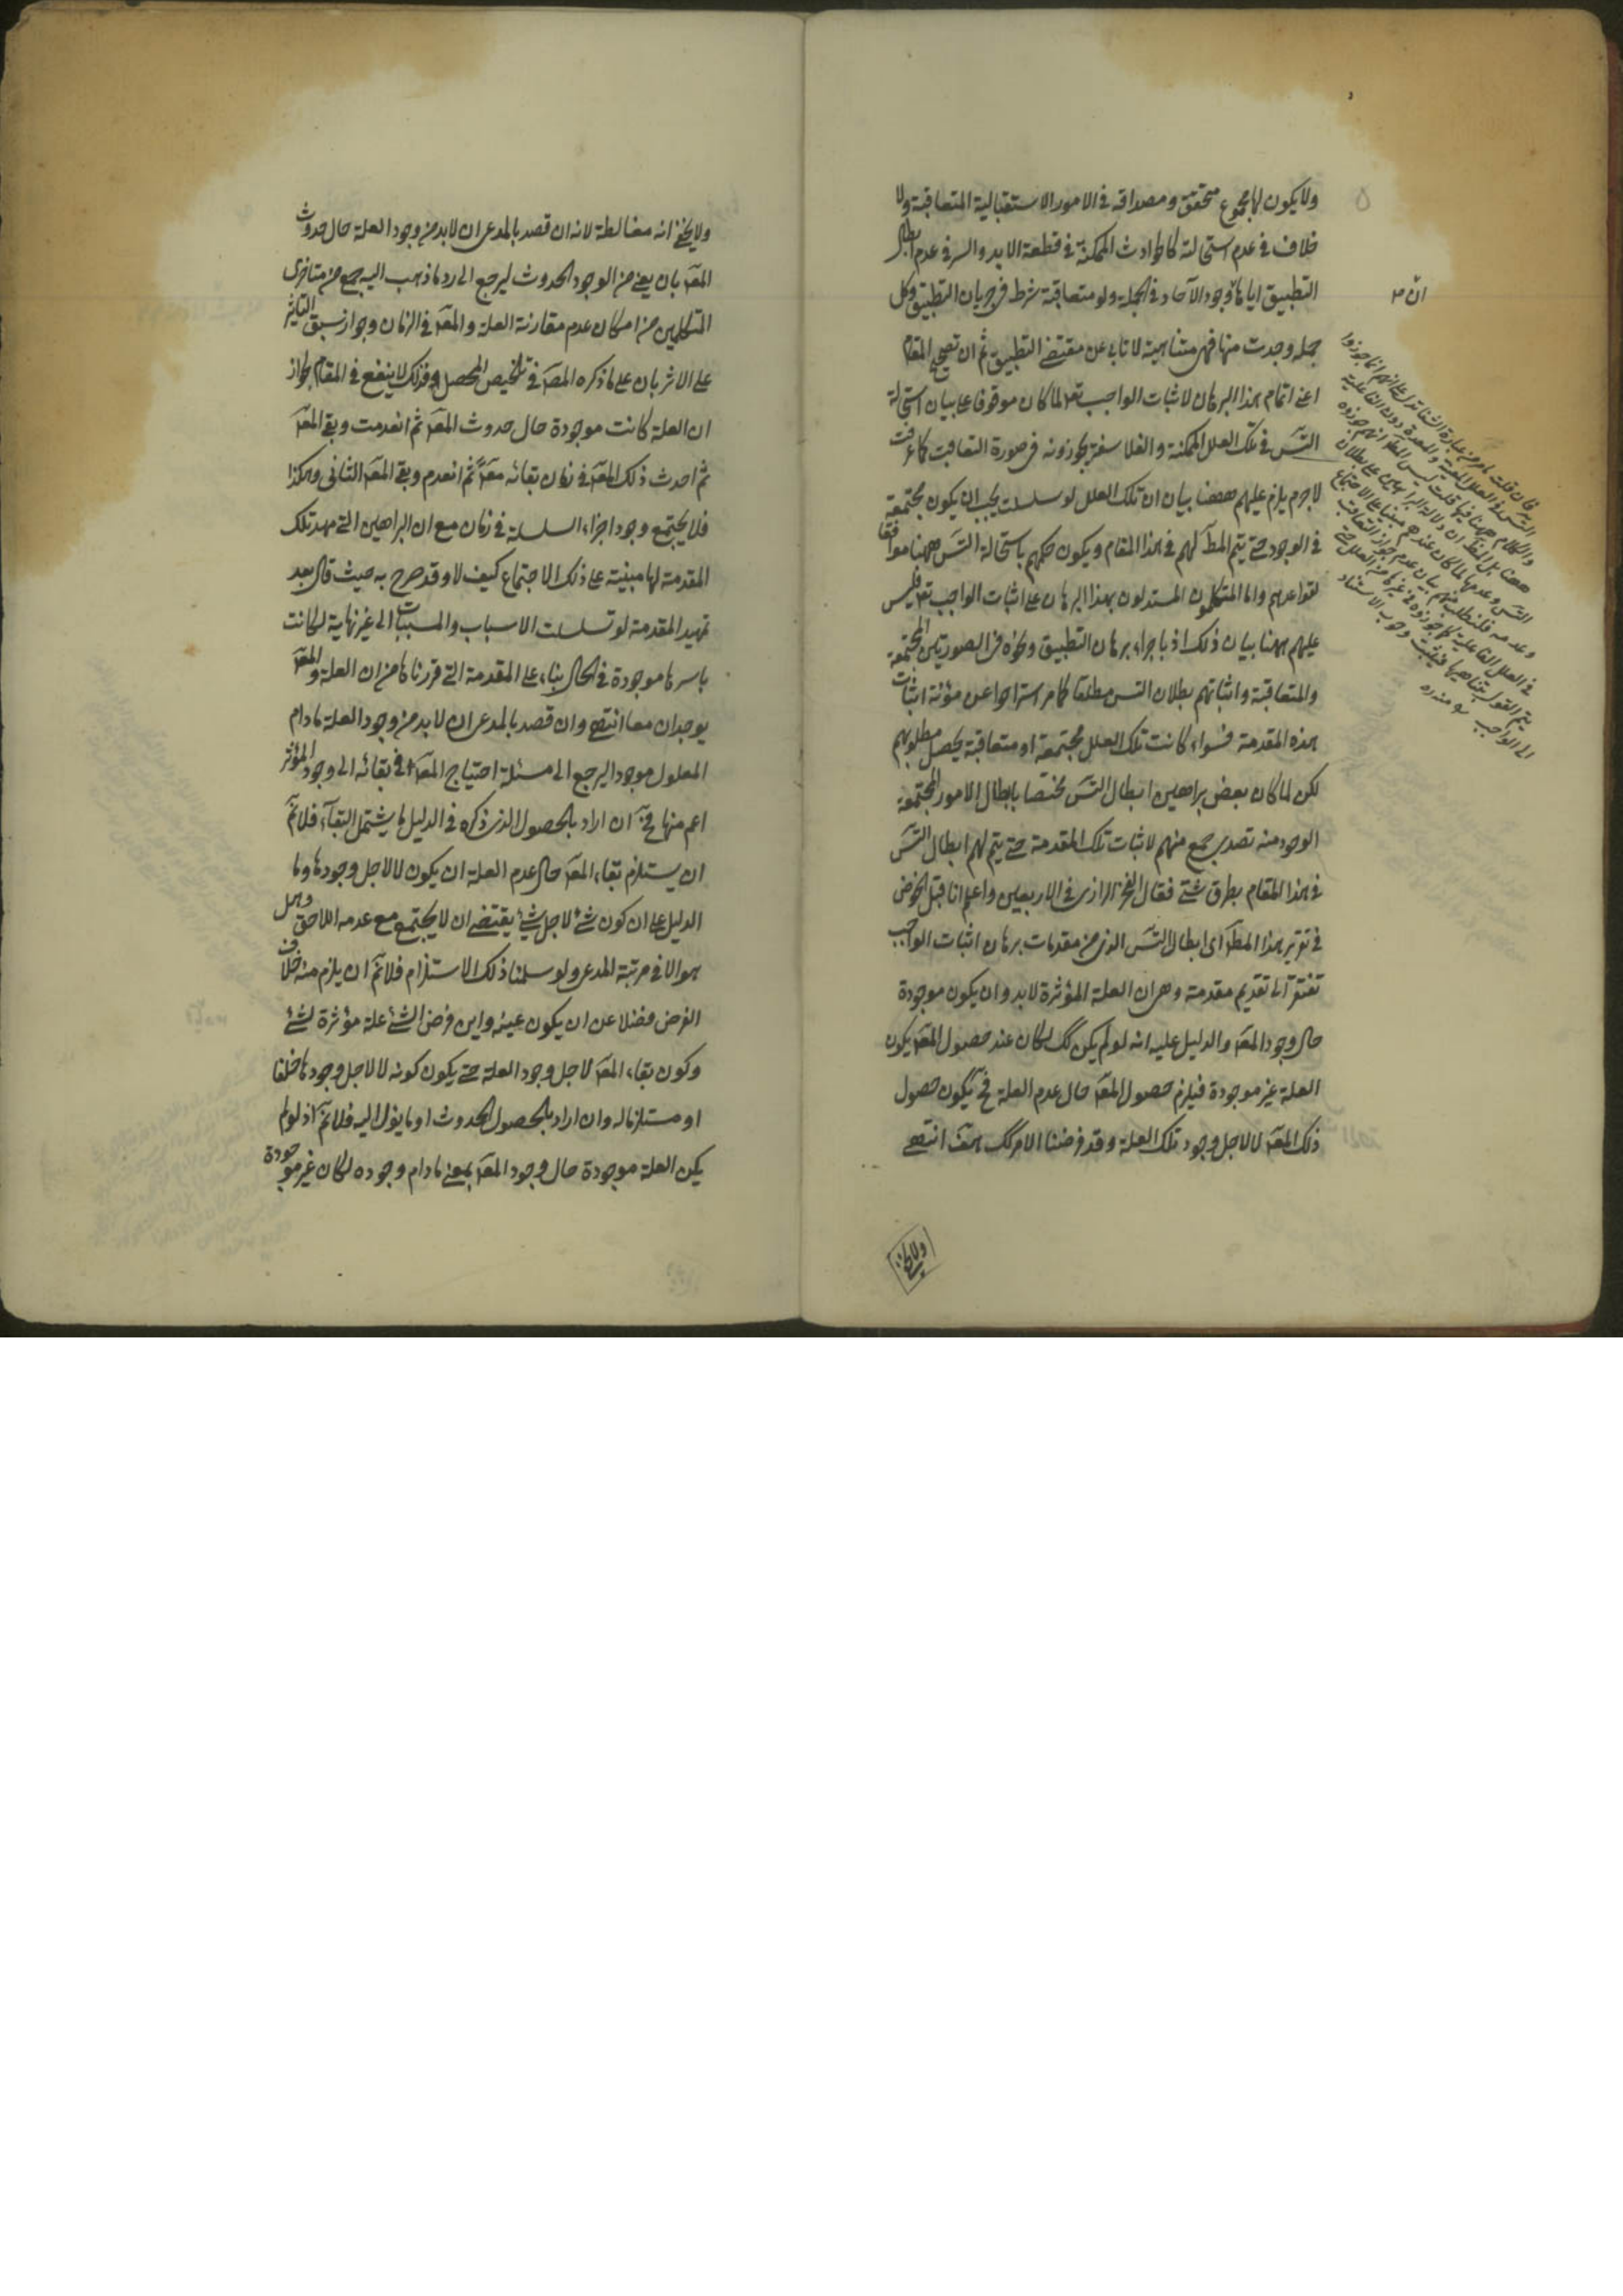 ولا يكون لها مجموع متحقق ومصداقه في الامور الاستقبالية المتعاقبة ولا
خلاف في عدم استحالته كالحوادث الممكنة في قطعة الابد والسر في عدم ابطال
التطبيق اياها وجود الآحاد في الجملة ولو متعاقبة شرط في جريان التطبيق وكل
جملة وجدت منها فهي متناهية لا تأبى عن مقتضى التطبيق ثم ان تصحيح المقام
اعني اتمام هذا البرهان لاثبات الواجب تعـ لما كان موقوفا على بيان استحالة
التسـ في تلك العلل الممكنة والفلاسفة يجوزونه في صورة التعاقب كما عرفت
لا جرم يلزم عليهم ههنا بيان ان تلك العلل لو تسلسلت يجب ان يكون مجتمعة
في الوجود حتى يتم المطـ لهم في هذا المقام ويكون حكمهم باستحالة التسـ ههنا موافقا
لقواعدهم واما المتكلمون المستدلون بهذا البرهان على اثبات الواجب تعـ فليس
عليهم ههنا بيان ذلك اذ باجراء برهان التطبيق ونحوه في الصورتين المجتمعة
والمتعاقبة واثباتهم بطلان التسـ مطلقا كما مر استراحوا عن مؤنة اثبات
هذه المقدمة فسواء كانت تلك العلل مجتمعة او متعاقبة يحصل مطلوبهم
لكن لما كان بعض براهين ابطال التسـ مختصا بابطال الامور المجتمعة
الوجود منه تصدى جمع منهم لاثبات تلك المقدمة حتى يتم لهم ابطال التسـ
في هذا المقام بطرق شتى فقال الفخر الرازي في الاربعين واعلم انا قبل الخوض
في تقرير هذا المطـ اي ابطال التسـ الذي من مقدمات برهان اثبات الواجب
نفتقر الى تقديم مقدمة وهي ان العلة المؤثرة لا بد وان يكون موجودة
حال وجود المعـ والدليل عليه انه لو لم يكن كك لكان عند حصول المعـ يكون
العلة غير موجودة فيلزم حصول المعـ حال عدم العلة فح يكون حصول
ذلك المعـ لا لاجل وجود تلك العلة وقد فرضنا الامر كك هف انتهى
ولا يخفى
ان
فان قلت ما مر من عبارة الشفا تدل على انهم انما جوزوا
التسـ في العلل المعينة والمعدة دون الفاعلية
والكلام ههنا فيها قلت ليس
ههنا بل
التسـ وعدمها لما كان عندهم مبنيا على الاجتماع
وعدمه فلنطلب منهم بيان عدم جواز التعاقب
في العلل الفاعلية كما جوزوه في غيرها من العلل حتى
يتم القول بتناهيها فيثبت وجوب الاستناد
الى الواجب منه ره
ولا يخفى انه مغالطة لانه ان قصد بالمدعى ان لا بد من وجود العلة حال حدوث
المعـ بان يعني من الوجود الحدوث ليرجع الى رد ما ذهب اليه جمع من متاخري
المتكلمين من امكان عدم مقارنة العلة والمعـ في الزمان وجواز سبق التاثير
على الاثر بان على ما ذكره المصـ في تلخيص المحصل فذلك لا ينفع في المقام لجواز
ان العلة كانت موجودة حال حدوث المعـ ثم انعدمت وبقي المعـ
ثم احدث ذلك المعـ في زمان بقائه معـ ثم انعدم وبقي المعـ الثاني وهكذا
فلا يجتمع وجود اجزاء السلسلة في زمان مع ان البراهين التي مهد تلك
المقدمة لها مبنية على ذلك الاجتماع كيف لا وقد صرح به حيث قال بعد
تمهيد المقدمة لو تسلسلت الاسباب والمسببات الى غير نهاية لكانت
باسرها موجودة في الحال بناء على المقدمة التي قررناها من ان العلة والمعـ
يوجدان معا انتهى وان قصد بالمدعى ان لا بد من وجود العلة ما دام
المعلول موجودا ليرجع الى مسئلة احتياج المعـ في بقائه الى وجود المؤثر
اعم منها فح ان اراد بالحصول الذي ذكره في الدليل ما يشتمل البقاء فلا نم
ان يستلزم بقاء المعـ حال عدم العلة ان يكون لا لاجل وجودها وما
الدليل على ان كون شئ لاجل شئ يقتضي ان لا يجتمع مع عدمه اللاحق وهل
هو الا في مرتبة المدعى ولو سلمنا ذلك الاستلزام فلا نم ان يلزم منه خلاف
الفرض فضلا عن ان يكون عينه واين فرض الشئ علة مؤثرة لشئ
وكون بقاء المعـ لاجل وجود العلة حتى يكون كونه لا لاجل وجودها خلفا
او مستلزما له وان اراد بالحصول الحدوث او ما يؤل اليه فلا نم اذ لو لم
يكن العلة موجودة حال وجود المعـ بمعنى ما دام وجوده لكان غير موجودة